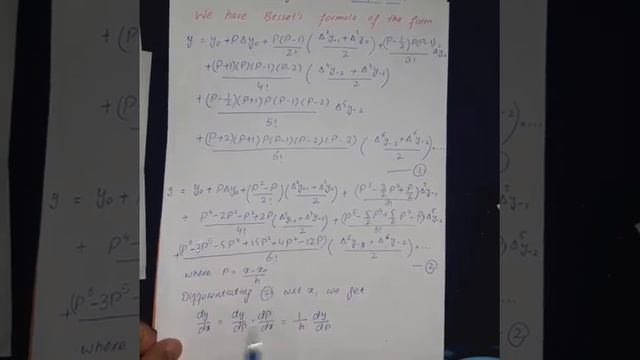 We have Bessel's formula of the form
y = y₀ + PΔy₀ + P(P-1)/2! ( Δ²y₋₁+Δ²y₀ / 2 ) + (P-½)P(P-1)/3! Δ³y₋₁
+ (P+1)(P)(P-1)(P-2)/4! ( Δ⁴y₋₂ + Δ⁴y₋₁ / 2 )
+ (P-½)(P+1)P(P-1)(P-2)/5! Δ⁵y₋₂
+ (P+2)(P+1)P(P-1)(P-2)(P-3)/6! ( Δ⁶y₋₃+Δ⁶y₋₂ / 2 ) ....
— ①
y = y₀ + PΔy₀ + (P²-P / 2!) (Δ²y₋₁+Δ²y₀ / 2) + (P³-3/2 P²+P/2)/3! Δ³y₋₁
+ P⁴-2P³-P²+2P / 4! (Δ⁴y₋₂+Δ⁴y₋₁ / 2) + (P⁵-5/2 P⁴+5/2 P²-P)/5! Δ⁵y₋₂
+ (P⁶-3P⁵-5P⁴+15P³+4P²-12P)/6! ( Δ⁶y₋₃+Δ⁶y₋₂ / 2 ) ....
— ②
where P = x-x₀ / h
Differentiating ② wrt x, we get
dy/dx = dy/dP · dP/dx = 1/h dy/dP